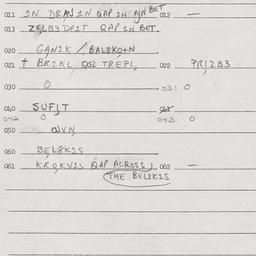 011 IN DRAWIN QAP IN AJN BET 012 —
013 ZELB3 DRIT QAP IN BET.
020 GANIK / BALBKO+N
021 + BRIKL QOL TREPL, 022 PRIZB3
030 0 031 0
040 SUFIT 041
042 0 043 0
050 NVN
060 BELBKIS
061 KROKVIS QAP ACROSS, 062 —
THE BELBKIS